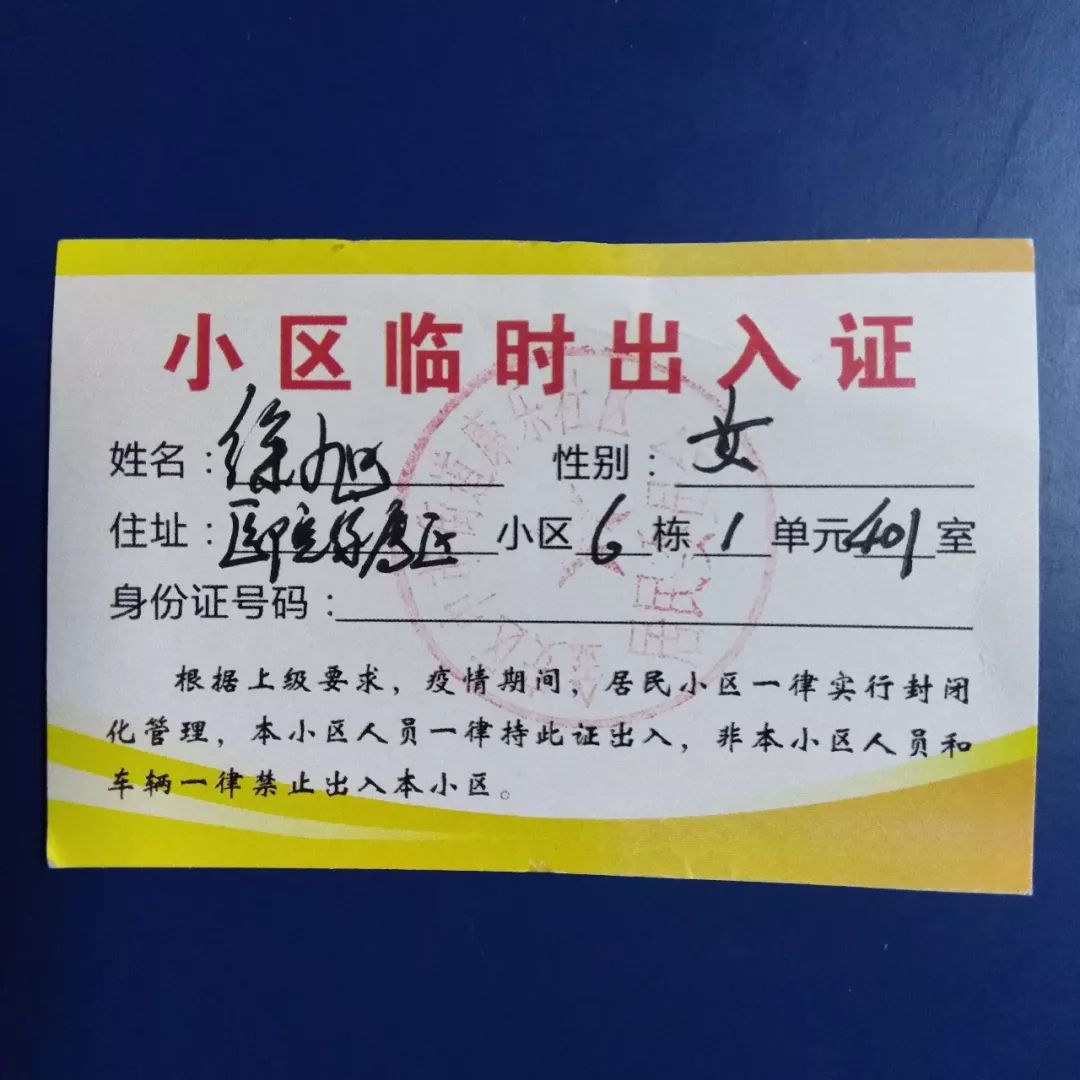 小区临时出入证
姓名：徐旭 性别：女
住址：小区6栋1单元401室
身份证号码：
根据上级要求，疫情期间，居民小区一律实行封闭
化管理，本小区人员一律持此证出入，非本小区人员和
车辆一律禁止出入本小区。
康乐社区
居民委员会